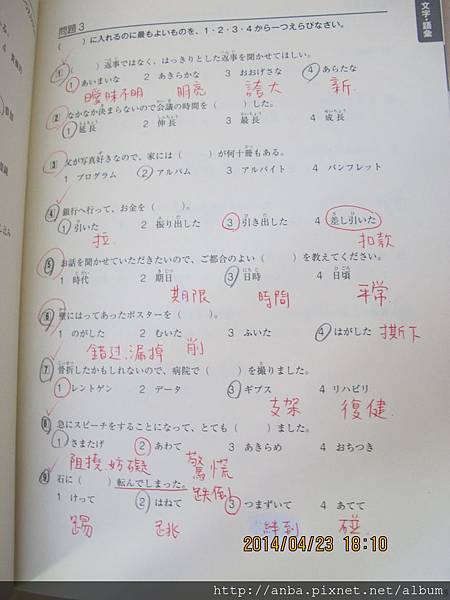 文字・語彙
問題3
( )に入れるのに最もよいものを、1・2・3・4から一つえらびなさい。
1 ( )返事ではなく、はっきりとした返事を聞かせてほしい。
1 あいまいな 2 あきらかな 3 おおげさな 4 あらたな
曖昧不明 明亮 誇大 新
2 なかなか決まらないので会議の時間を( )した。
1 延長 2 伸長 3 最長 4 成長
3 父が写真好きなので、家には( )が何十冊もある。
1 プログラム 2 アルバム 3 アルバイト 4 パンフレット
4 銀行へ行って、お金を( )。
1 引いた 2 振り出した 3 引き出した 4 差し引いた
拉 扣款
5 お話を聞かせていただきたいので、ご都合のよい( )を教えてください。
1 時代 2 期日 3 日時 4 日頃
期限 時間 平常
6 壁にはってあったポスターを( )。
1 のがした 2 むいた 3 ふいた 4 はがした 撕下
錯过.漏掉 削
7 骨折したかもしれないので、病院で( )を撮りました。
1 レントゲン 2 データ 3 ギプス 4 リハビリ
支架 復健
8 急にスピーチをすることになって、とても( )ました。
1 さまたげ 2 あわて 3 あきらめ 4 おちつき
阻撓.妨礙 驚慌
9 石に( )転んでしまった。跌倒
1 けって 2 はねて 3 つまずいて 4 あてて
踢 跳 絆到 碰
2014/04/23 18:10
http://anba.pixnet.net/album